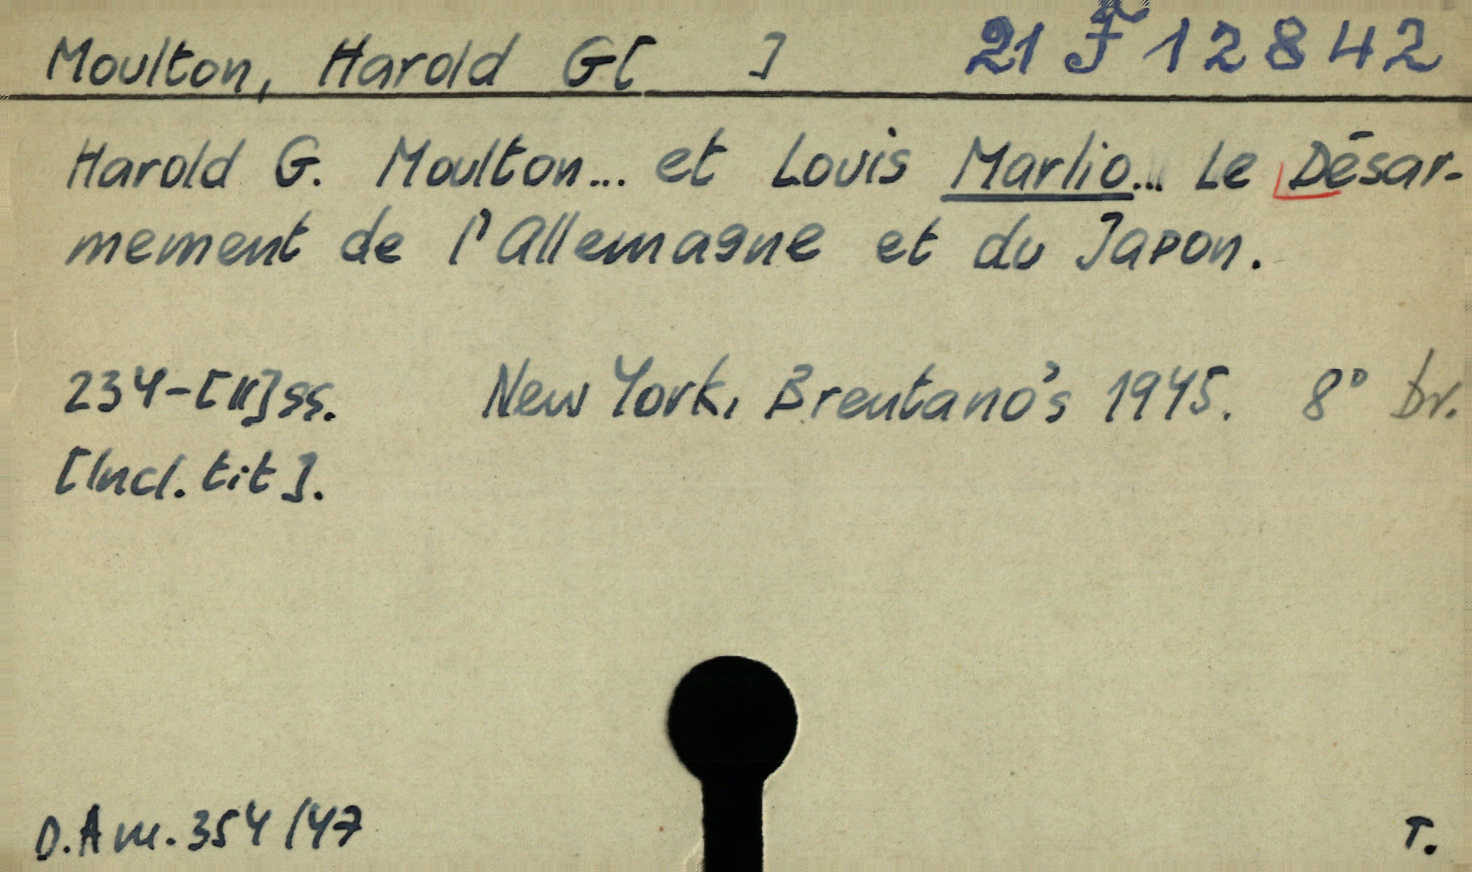 Moulton, Harold G[ ] 21 F 12842
Harold G. Moulton... et Louis Marlio... Le Désar-
mement de l'Allemagne et du Japon.
234-[II]ss. New York, Brentano's 1945. 8° br.
[Incl. tit].
D.Am. 354/47 T.